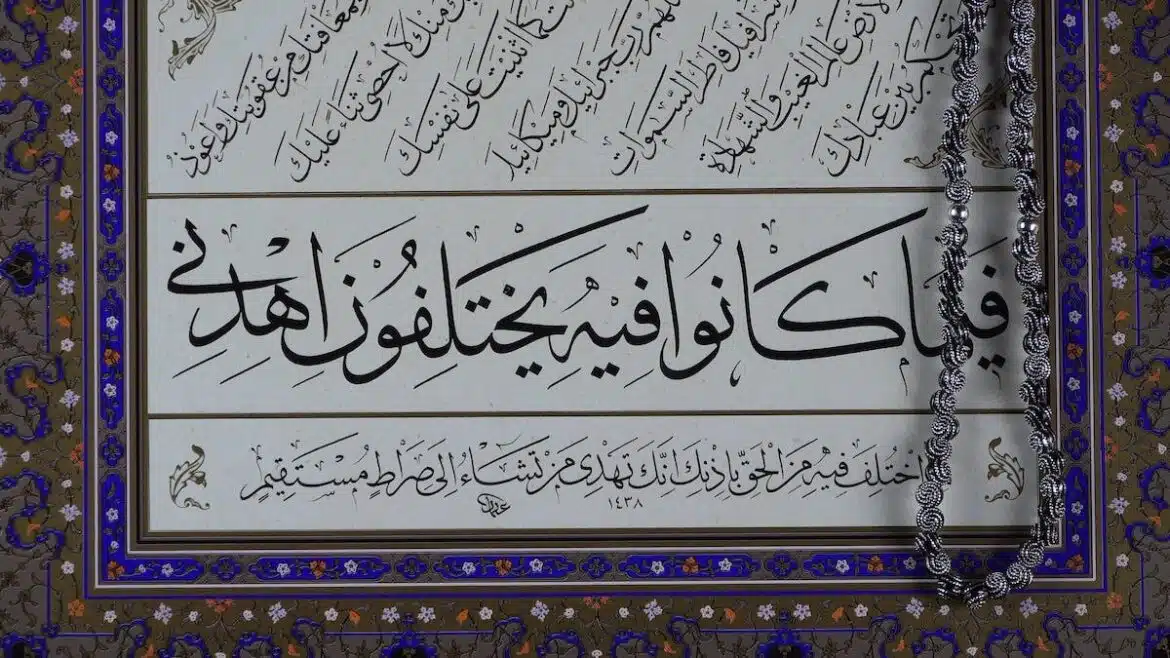 وبمعافاتك من عقوبتك واعوذ
منك لا احصى ثناء عليك
كما اثنيت على نفسك
رب جبرائيل وميكائيل
فاطر السموات
عالم الغيب والشهادة
بين عبادك
فيما كانوا فيه يختلفون اهدني
اختلف فيه من الحق باذنك انك تهدى من تشاء الى صراط مستقيم
١٤٣٨